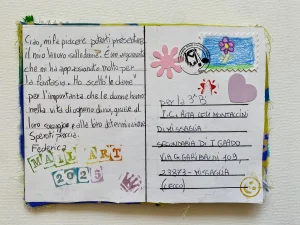 Ciao, mi fa piacere poterti presentare
il mio lavoro sulle donne. È un argomento
che mi ha appassionato molto per
la fantasia. Ho scelto "le donne"
per l'importanza che le donne hanno
nella vita di ognuno, grazie al
loro coraggio e alla loro determinazione.
Spero ti piaccia.
Federica
MAIL ART
2025
per la 3ªB
I.C. RITA LEVI MONTALCINI
DI MISSAGLIA
SECONDARIA DI I GRADO
VIA G. GARIBALDI 109,
23873 - MISSAGLIA
(LECCO)